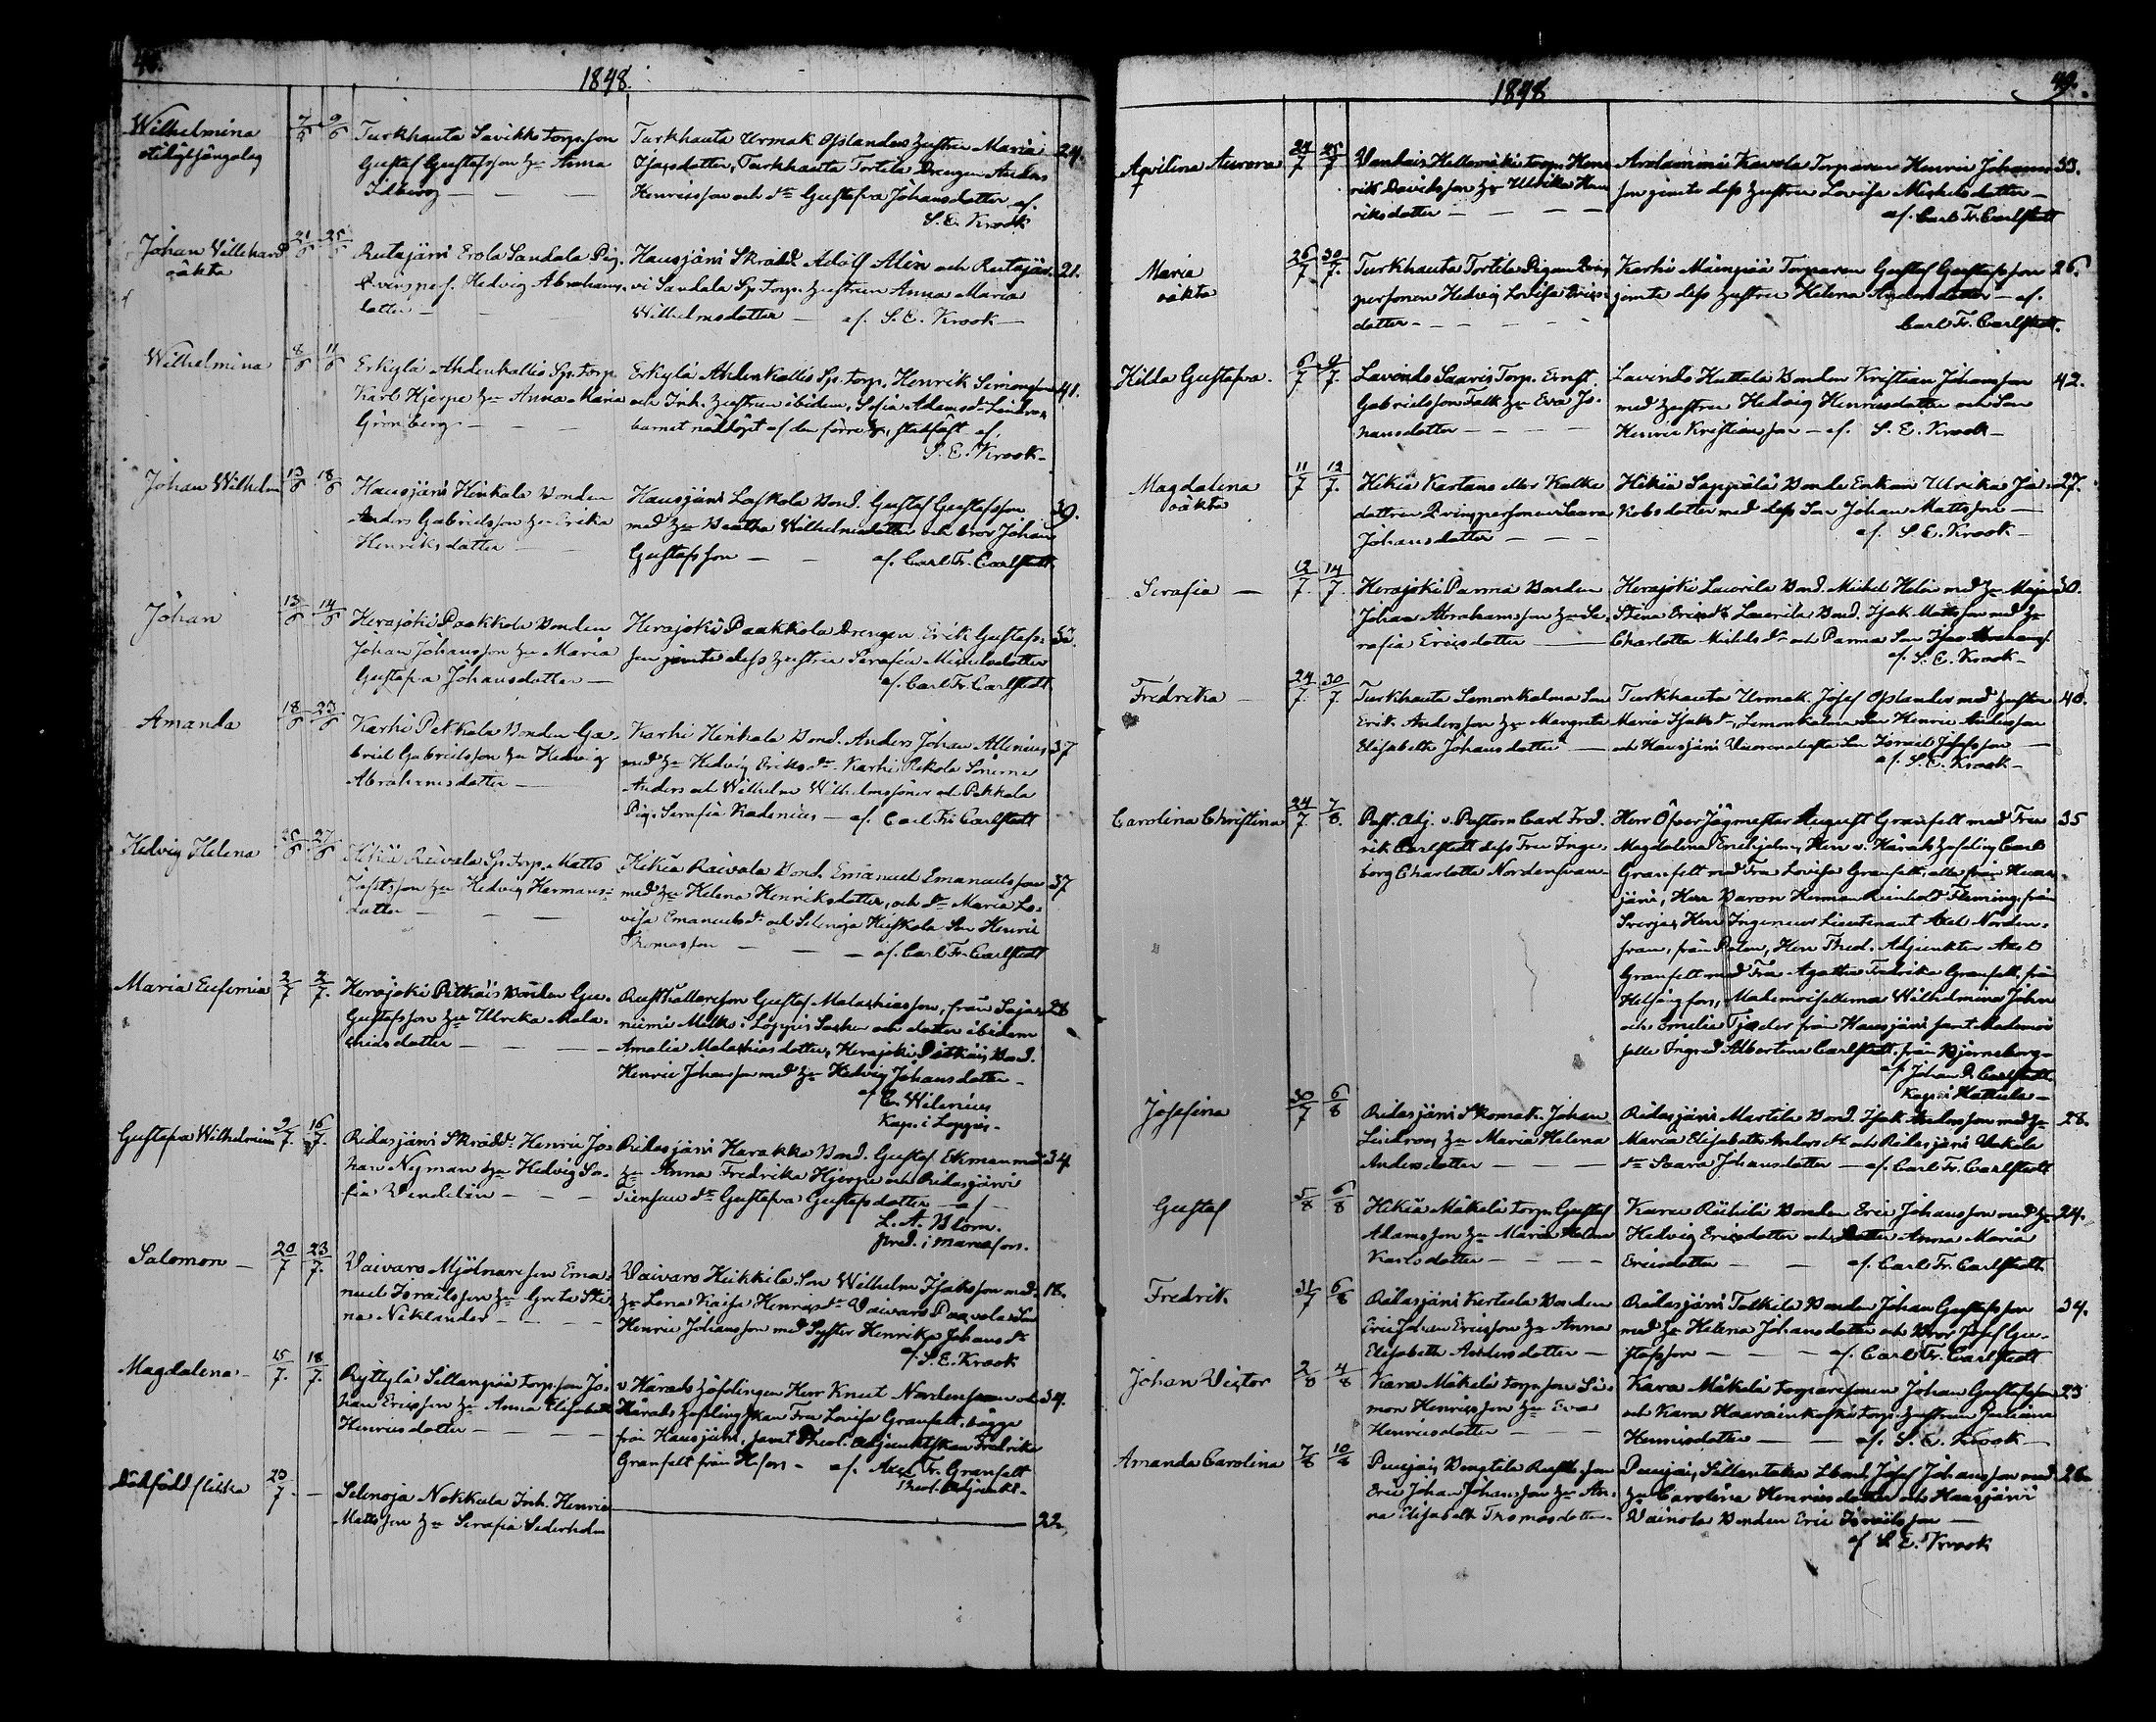 1848.
Wilhelmina 7/6 9/6 Turkhauta Savikko torp.son Turkhauta Urmak. Osolanders hustru Maria 24.
Gustaf Gustafsson h:u Anna Isacsdotter, Turkhauta Tortila Drengen Anders
Henricsson och d:r Gustafva Johansdotter af.
S. E. Krook
Johan Willehard 21/5 25/5 Rutajärvi Erola Sandala Pig. Hausjärvi Skrädd. Adolf Alin och Rutajär- 21.
oäkta Qvinspers. Hedvig Abrahams- vi Sandala Sp.torp. hustrun Anna Maria
dotter — Wilhelmsdotter — af. S. E. Krook —
Wilhelmina 8/6 11/6 Erkylä Ahdenkallio Sp.torp. Erkylä Ahdenkallio Sp.torp. Henrik Simonsson 41.
Karl Hjerpe h:u Anna Maria och Inh. hustrun ibidem, Sofia Adamsd:r
Grönberg — barnet nöddöpt af den förre h:u, stadfäst af
S. E. Krook —
Johan Wilhelm 18/6 Hausjärvi Heinkala Bonden Hausjärvi Laskola Bond. Gustaf Gustafsson 39.
Anders Gabrielsson h:u Erika med h:u Beatha Wilhelmsdotter och bror Johan
Henriksdotter — Gustafsson — af. Carl Fr. Carlstedt
Johan 13/6 14/6 Herajoki Paakkola Bonden Herajoki Paakkola Drengen Erik Gustafs-
Johan Johansson h:u Maria son jemte dess hustru Serafia Michelsdotter
Gustafva Johansdotter — af. Carl Fr. Carlstedt
Amanda 18/6 23/6 Karhi Pekkala Bonden Ga- Karhi Heinkala Bond. Anders Johan Allenius 37
briel Gabrielsson h:u Hedvig med h:u Hedvig Eriksd:r Karhi Pekola Sönerna
Abrahamsdotter — Anders och Wilhelm Wilhelmssöner och Pekkala
Pig. Serafia Radenius — af. Carl Fr. Carlstedt
Hedvig Helena 25/6 27/6 Hikiä Raivala Sp.torp. Matts Hikiä Raivala Bond. Emanuel Emanuelsson 37
h:u Hedvig Hermans- med h:u Helena Henriksdotter, och d:r Maria Lo-
dotter — visa Emanuelsd:r och Selenoja Heiskola Son Henric
Thomasson — af. Carl Fr. Carlstedt
Maria Eufemia 2/7 2/7. Herajoki Pitkäis Bonden Gu. Rusthållareson Gustaf Malachiasson, från Saja- 28
Gustafsson h:u Ulrika Mala- niemi i Loppis Socken och dotter ibidem
chiasdotter — Amalia Malachiasdotter, Herajoki Pitkäis Bond.
Henric Johansson med h:u Hedvig Johansdotter —
af C. Wilenius
Kap. i Loppis —
Gustafva Wilhelmina 9/7. 16/7. Ridasjärvi Skrädd. Henric Jo- Ridasjärvi Harakka Bond. Gustaf Ekman med 34
han Nyman h:u Hedvig So- h:u Anna Fredrika Hjerpe och Ridasjärvi
fia Wendelin — d:r Gustafva Gustafsdotter — af
L. A. Blom.
pred. i Mariefors.
Salomon — 20/7 23/7. Vaivaro Mjölnare son Ema- Vaivaro Heikkilä Son Wilhelm Isaksson med 18.
nuel Israelsson h:u Greta Sti- h:u Lena Kaisa Henricsd:r Vaivaro Paavola Son
na Neklander — Henric Johansson med Syster Henrika Johansd:r
af. S. E. Krook
Magdalena — 15/7. 18/7. Ryttylä Siltanpää torp.son Jo- v. Härads höfdingen Herr Knut Nordenswan och 34.
han Ericsson h:u Anna Elisabeth Härads höfdingskan Fru Lovisa Granfelt, bägge
Henricsdotter — från Hausjärvi, samt Theol. Adjunktskan Fredrika
Granfelt från H:fors — af. Axel Fr. Granfelt
Theol. Adjunkt —
Dödfödd flicka 20/7 — Selenoja Nokkula Inh. Henric
Mattsson h:u Serafia Sederholm 22.
1848
49.
Aqvilina Aurora 24/7 25/7 Vanhais Kellomäki torp. Hen- Arolammi Kavola Torparen Henric Johans- 33.
rik Davidsson h:u Ulrika Hen- son jemte dess hustru Lovisa Michelsdotter —
riksdotter — af. Carl Fr. Carlstedt
Maria 26/7 30/7. Turkhauta Tortila Pigan Qvins- Karhi Mäenpää Torparen Gustaf Gustafsson 26.
oäkta personen Hedvig Lovisa Erics- jemte dess hustru Helena Andersdotter — af.
dotter — Carl Fr. Carlstedt.
Hilda Gustafva. 6/7 9/7. Lavindo Saaris Torp. Ernst Lavindo Huttula Bonden Kristian Johansson 42.
Gabrielsson Falk h:u Eva Jo- med hustru Hedvig Henricsdotter och Son
hansdotter — Henric Kristiansson — af. S. E. Krook —
Magdalena 11/7 12/7. Hikiä Kartano eller Kulke Hikiä Seppälä Bonde Enkan Ulrika Ja- 27.
oäkta dottren Qvinspersonen Saara kobsdotter med dess Son Johan Mattsson —
Johansdotter — af. S. E. Krook —
Serafia — 12/7. 14/7. Herajoki Parma Bonden Herajoki Laurila Bond. Michel Helin med h:u Maja 30.
Johan Abrahamsson h:u Se- Stina Ericsd:r Laurila Bond. Isak Mattsson med h:u
rafia Ericsdotter — Charlotta Michelsd:r och Parma Son Isac Abrahamss.
af. S. E. Krook —
Fredrika — 24/7. 30/7. Turkhauta Lemonkalma Son Turkhauta Urmak. Josef Osolander med hustru 40.
Erik Andersson h:u Margreta Maria Isaksd:r, Lemonkalma Son Henric Andersson
Elisabeth Johansdotter — och Hausjärvi Son Israel Josefsson —
af. S. E. Krook —
Carolina Christina 24/7. 7/8. Past. Adj. v. Pastorn Carl Fred- Herr Öfver Jägmester August Granfelt med Fru 35
rik Carlstedt dess Fru Inge- Magdalena Hjelm, Herr v. Härads höfding Carl
borg Charlotta Nordenswan — Granfelt med Fru Lovisa Granfelt, alla från Haus-
järvi, Herr Baron Herman Reinhold Fleming, från
Sverje, Herr Ingenieur Lieutenant Axel Norden-
swan, från Polen, Herr Theol. Adjunkten Axel
Granfelt med Fru Agatha Fredrika Granfelt, från
Helsingfors, Mademoisellerna Wilhelmina John
och Emelie Tjäder från Hausjärvi samt Mademoi-
selle Ingred Albertina Carlstedt, från Björneborg —
af Johan D. Carlstedt
Kap. i Hattula —
Josefina 30/7 6/8 Ridasjärvi Skomak. Johan Ridasjärvi Martila Bond. Isak Andersson med h:u 28.
Lindroos h:u Maria Helena Maria Elisabeth Andersd:r och Ridasjärvi Uskila
Andersdotter — d:r Saara Johansdotter — af. Carl Fr. Carlstedt
Gustaf 5/8 6/8 Hikiä Mäkelä torp. Gustaf Kara Riihilä Bonden Eric Johansson med h:u 24.
Adamsson h:u Maria Helena Hedvig Ericsdotter och Dotter Anna Maria
Karlsdotter — Ericsdotter — af. Carl Fr. Carlstedt.
Fredrik 31/7 6/8 Ridasjärvi Kertula Bonden Ridasjärvi Tolkila Bonden Johan Gustafsson 34.
Eric Johan Ericsson h:u Anna med h:u Helena Johansdotter och Bror Josef Gu-
Elisabeth Andersdotter — stafsson — af. Carl Fr. Carlstedt
Johan Victor 2/8 4/8 Kara Mäkelä torp.son Si- Kara Mäkelä torparesonen Johan Gustafsson 23
mon Henricsson h:u Eva och Kara Haarainkoski torp. hustrun Juliana
Henricsdotter — Henricsdotter — af. S. E. Krook —
Amanda Carolina 7/8 10/8 Puujaa Bengtila Rusth.son Puujaa, Sillantaka Lbond. Josef Johansson med 26.
Eric Johan Johansson h:u An- h:u Carolina Henricsdotter och Hausjärvi
na Elisabeth Thomasdotter — Väinölä Bonden Eric Israelsson —
af S. E. Krook